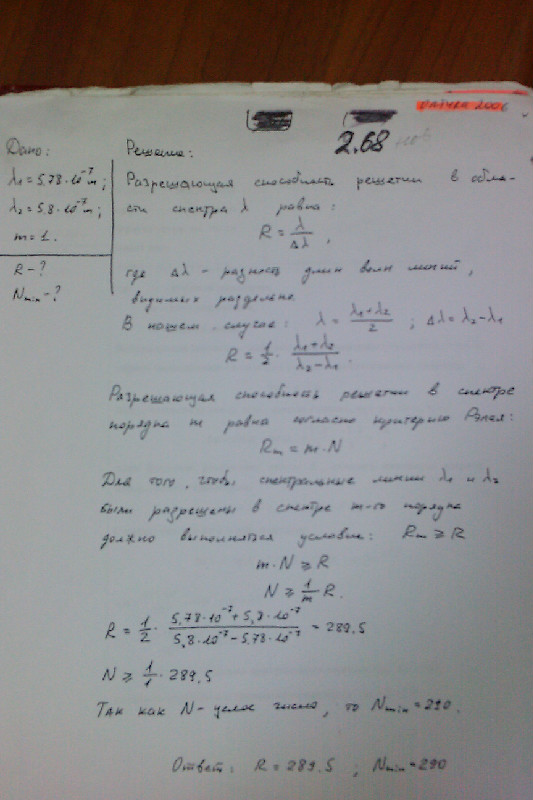 ФАТЫХА 2006
2.68 нов
Дано:
λ₁ = 5,78·10⁻⁷ m;
λ₂ = 5,8·10⁻⁷ m;
m = 1.
R - ?
Nmin - ?
Решение:
Разрешающая способность решетки в обла-
сти спектра λ равна:
R = λ/Δλ,
где Δλ - разность длин волн линий,
видимых раздельно
В нашем случае: λ = (λ₁+λ₂)/2 ; Δλ = λ₂ - λ₁
R = 1/2 · (λ₁+λ₂)/(λ₂-λ₁).
Разрешающая способность решетки в спектре
порядка m равна согласно критерию Рэлея:
Rm = m·N
Для того, чтобы спектральные линии λ₁ и λ₂
были разрешены в спектре m-го порядка
должно выполняться условие: Rm ≥ R
m·N ≥ R
N ≥ 1/m R.
R = 1/2 · (5,78·10⁻⁷+5,8·10⁻⁷)/(5,8·10⁻⁷-5,78·10⁻⁷) = 289.5
N ≥ 1/1 · 289.5
Так как N - целое число, то Nmin = 290.
Ответ: R = 289.5 ; Nmin = 290